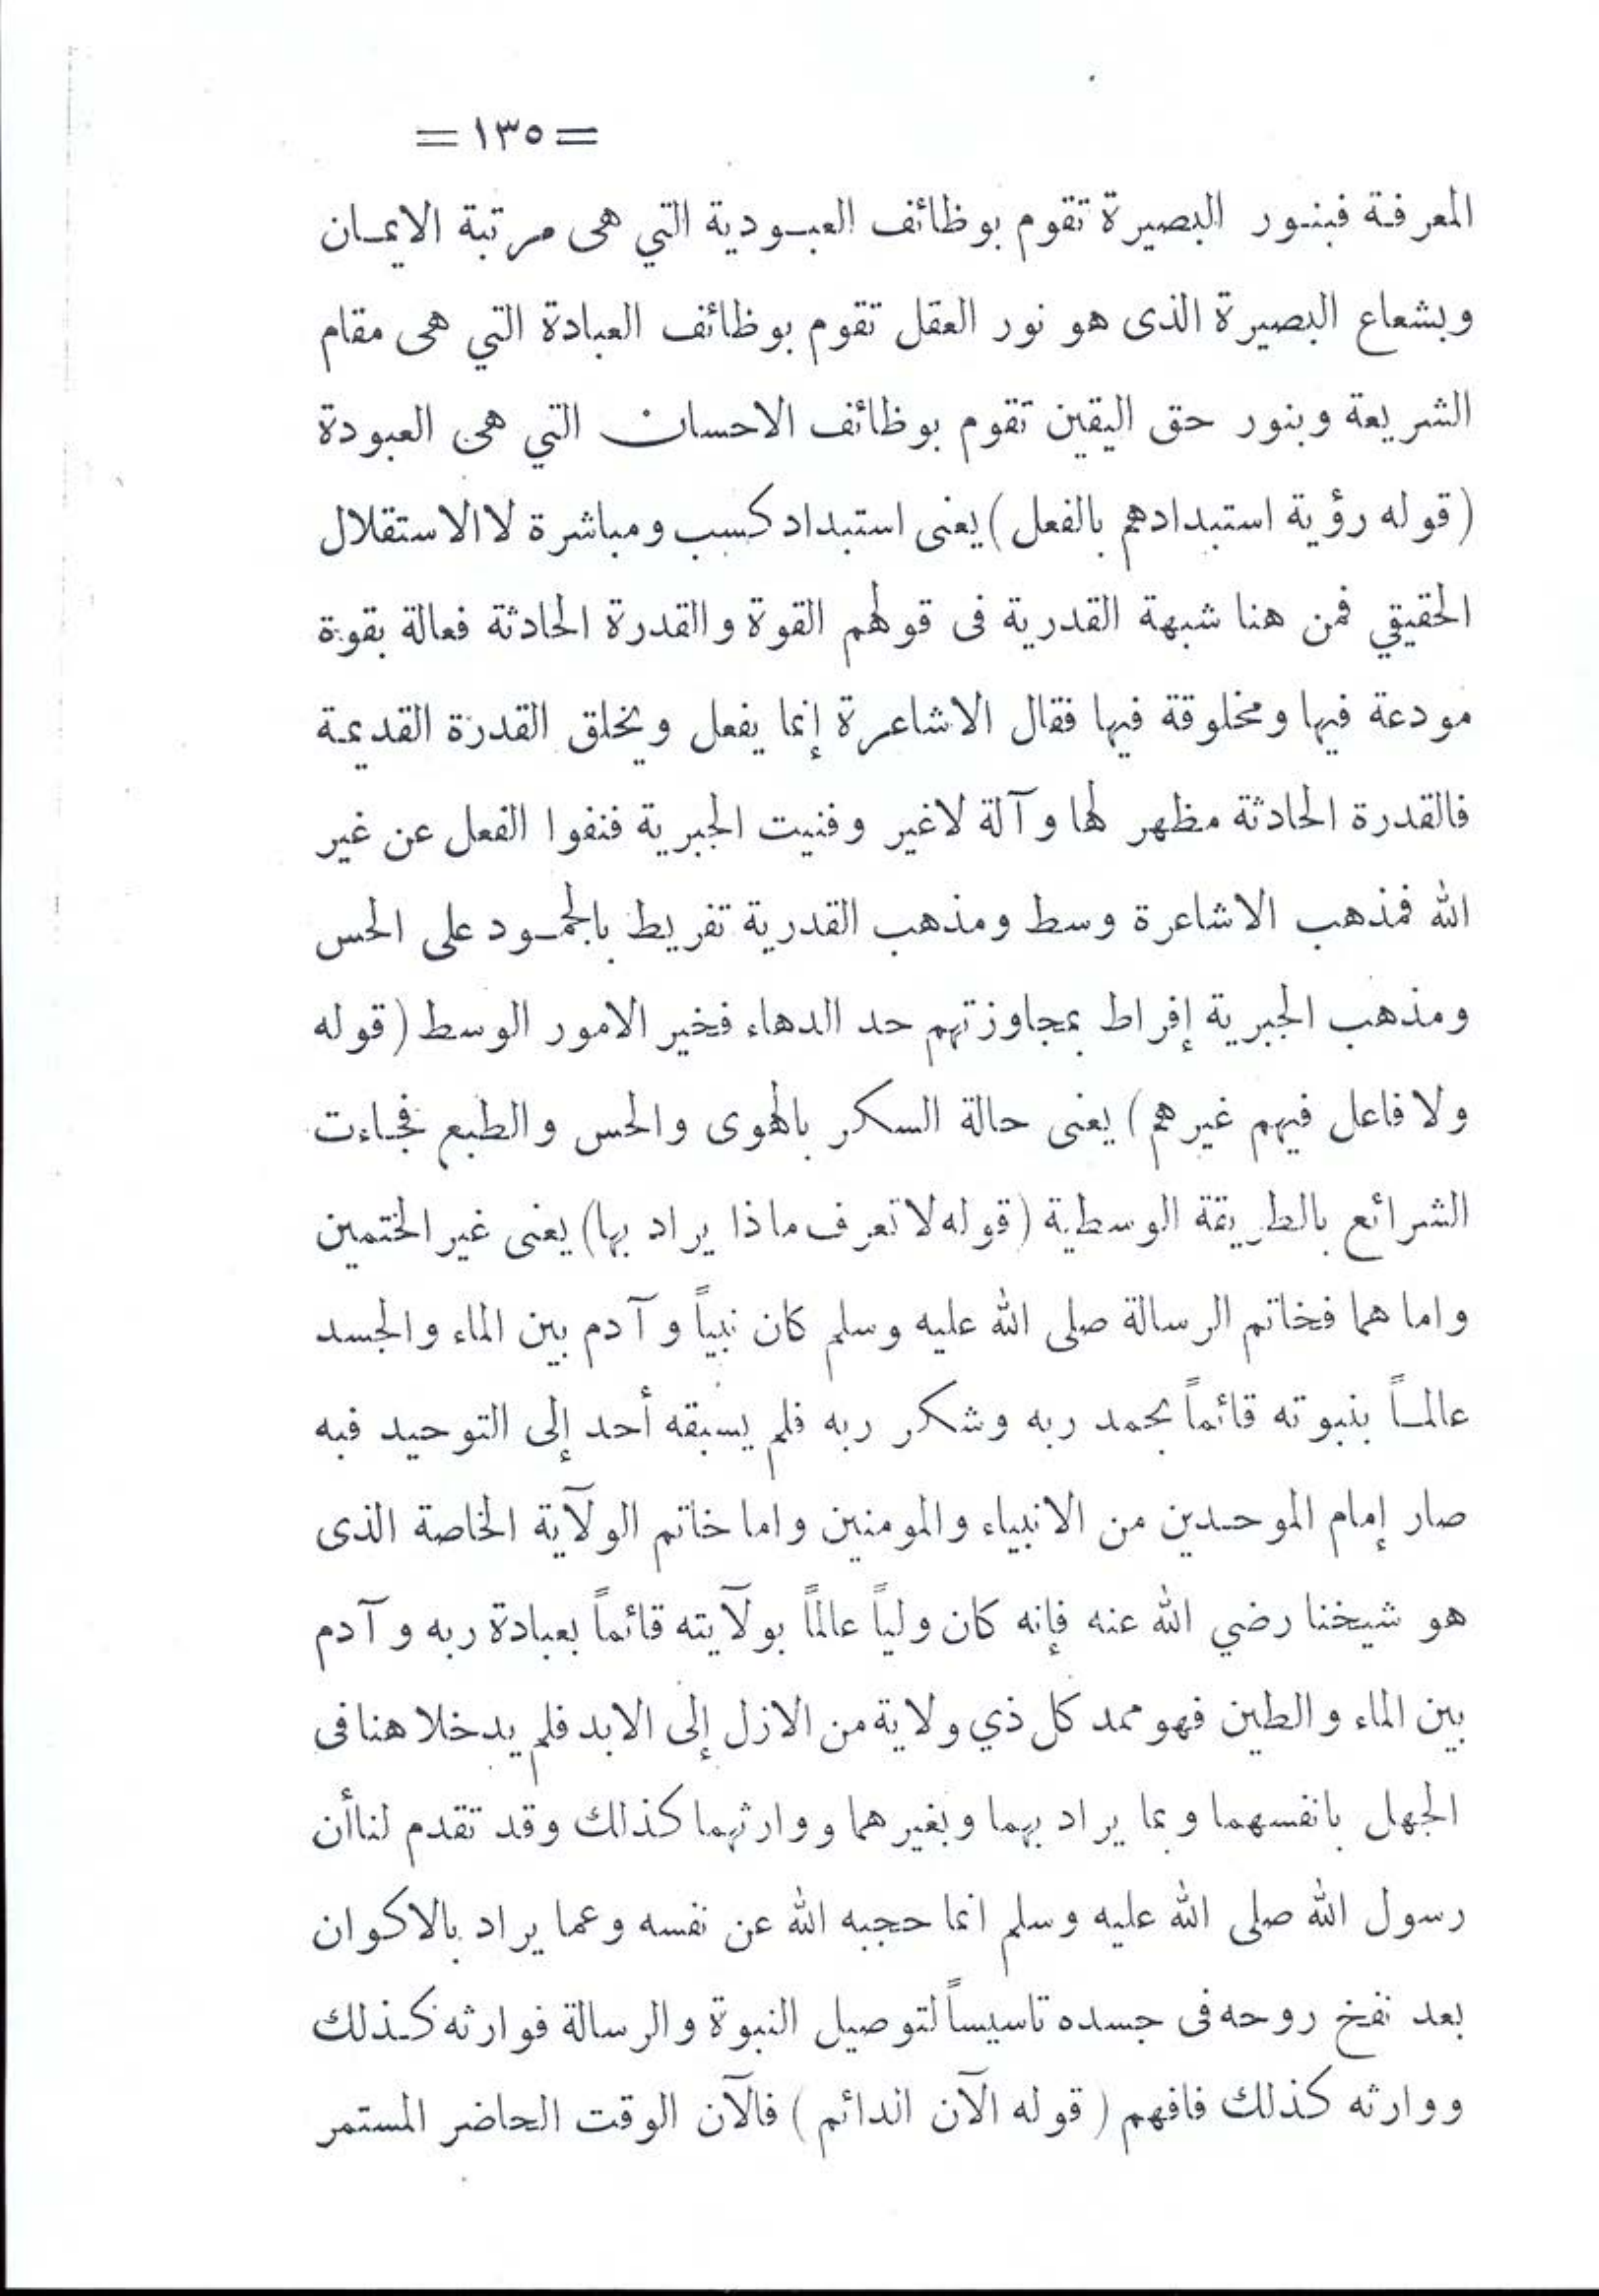 = ١٣٥ =
المعرفة فبنور البصيرة تقوم بوظائف العبودية التي هى مرتبة الايمان
وبشعاع البصيرة الذى هو نور العقل تقوم بوظائف العبادة التي هى مقام
الشريعة وبنور حق اليقين تقوم بوظائف الاحسان التي هى العبودة
(قوله رؤية استبدادهم بالفعل) يعنى استبداد كسب ومباشرة لا الاستقلال
الحقيقي فمن هنا شبهة القدرية فى قولهم القوة والقدرة الحادثة فعالة بقوة
مودعة فيها ومخلوقة فيها فقال الاشاعرة إنما يفعل ويخلق القدرة القديمة
فالقدرة الحادثة مظهر لها وآلة لاغير وفنيت الجبرية فنفوا الفعل عن غير
الله فمذهب الاشاعرة وسط ومذهب القدرية تفريط بالجمود على الحس
ومذهب الجبرية إفراط بمجاوزتهم حد الدهاء فخير الامور الوسط (قوله
ولا فاعل فيهم غيرهم) يعنى حالة السكر بالهوى والحس والطبع فجاءت
الشرائع بالطريقة الوسطية (قوله لا تعرف ماذا يراد بها) يعنى غير الختمين
واما هما فخاتم الرسالة صلى الله عليه وسلم كان نبياً وآدم بين الماء والجسد
عالماً بنبوته قائماً بحمد ربه وشكر ربه فلم يسبقه أحد إلى التوحيد فبه
صار إمام الموحدين من الانبياء والمومنين واما خاتم الولآية الخاصة الذى
هو شيخنا رضي الله عنه فإنه كان ولياً عالماً بولآيته قائماً بعبادة ربه وآدم
بين الماء والطين فهو ممد كل ذي ولاية من الازل إلى الابد فلم يدخلا هنا فى
الجهل بانفسهما وبما يراد بهما وبغيرهما ووارثهما كذلك وقد تقدم لنا أن
رسول الله صلى الله عليه وسلم انما حجبه الله عن نفسه وعما يراد بالاكوان
بعد نفخ روحه فى جسده تاسيساً لتوصيل النبوة والرسالة فوارثه كذلك
ووارثه كذلك فافهم (قوله الآن الدائم) فالآن الوقت الحاضر المستمر